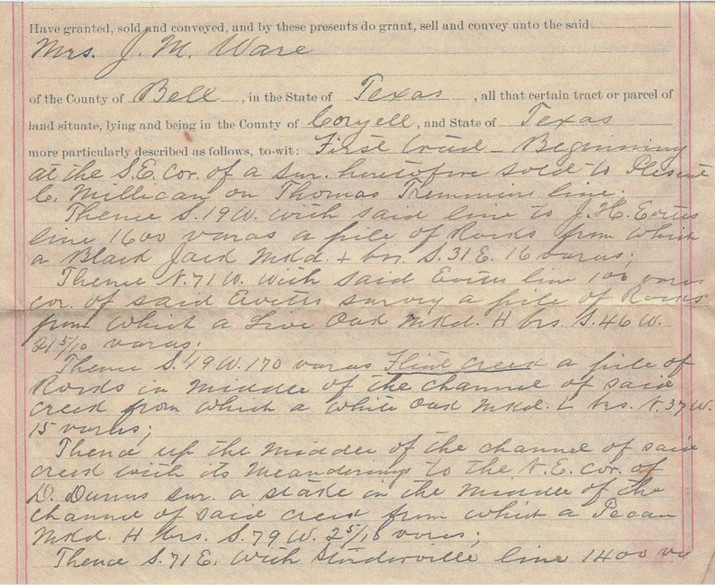 Have granted, sold and conveyed, and by these presents do grant, sell and convey unto the said
Mrs. J. M. Ware
of the County of Bell, in the State of Texas, all that certain tract or parcel of
land situate, lying and being in the County of Coryell, and State of Texas
more particularly described as follows, to-wit: First Tract - Beginning
at the S.E. Cor. of a sur. heretofore sold to
C. Millican on Thomas line.
Thence S. 19 W. with said line to J. H.
line 1600 varas a pile of Rocks from which
a Black Jack Mkd. + brs. S. 31 E. 16 varas;
Thence N. 71 W. with said line 100 varas
cor. of said survey a pile of Rocks
from which a Live Oak Mkd. H brs. S. 46 W.
21 5/10 varas;
Thence S. 19 W. 170 varas Flint Creek a pile of
Rocks in middle of the channel of said
creek from which a white Oak Mkd. L brs. N. 37 W.
15 varas;
Thence up the middle of the channel of said
creek with its meandering to the N.E. cor. of
D. sur. a stake in the middle of the
channel of said creek from which a Pecan
Mkd. H brs. S. 79 W. 2 5/10 varas;
Thence S. 71 E. with line 1400 va